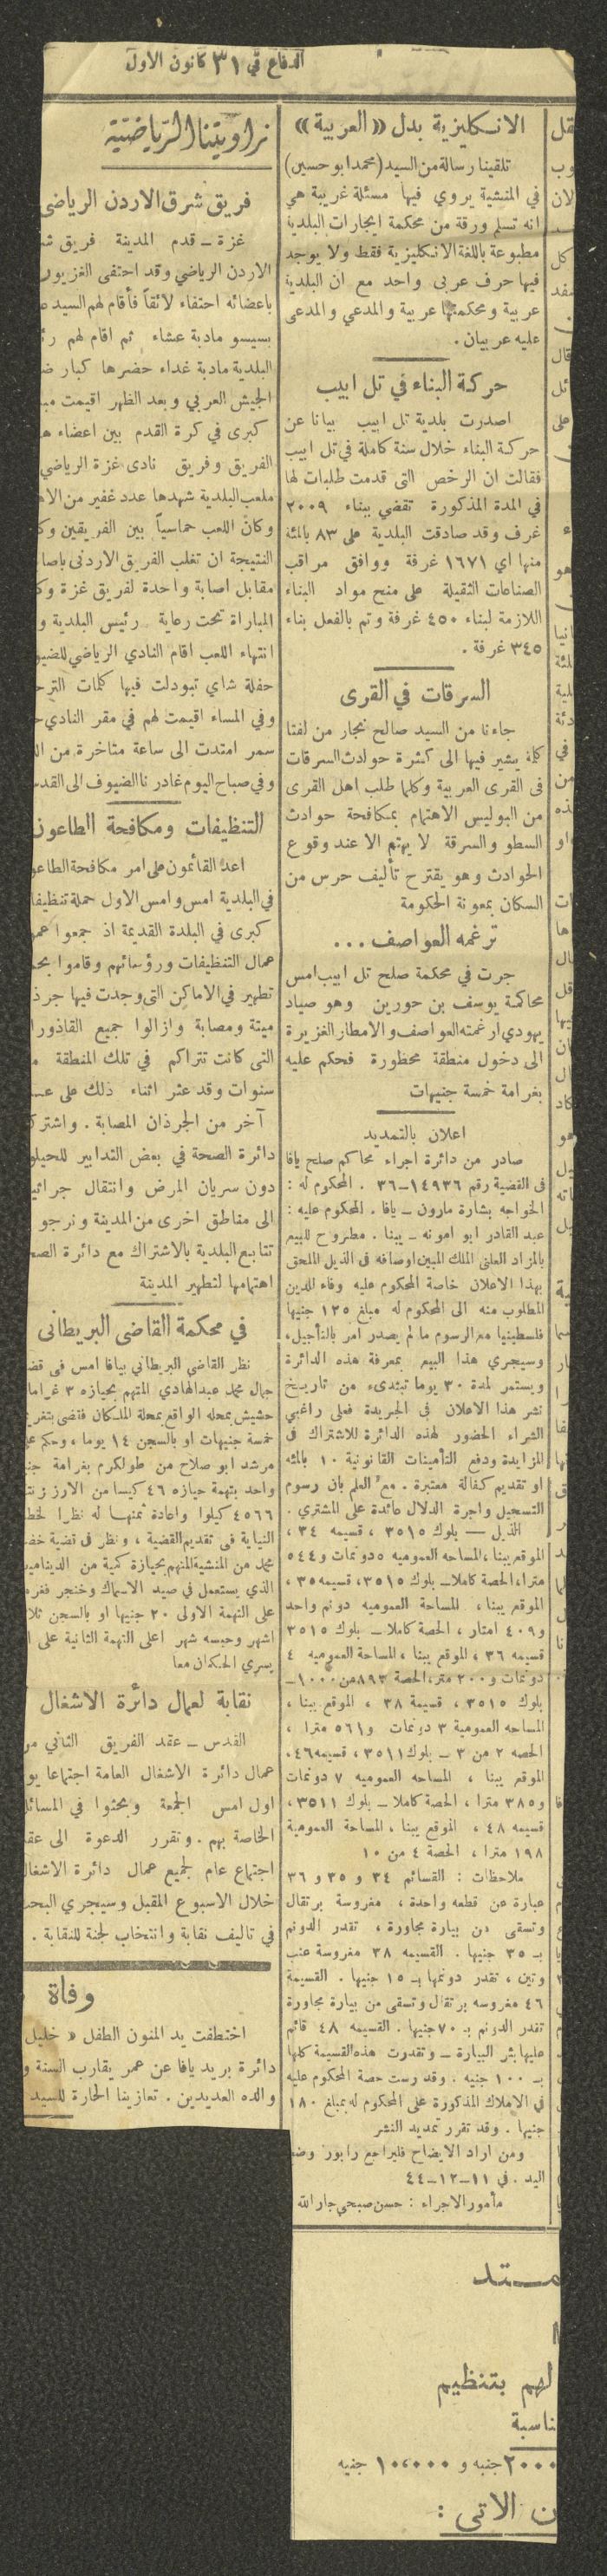 الدفاع في ٣١ كانون الاول
الانكليزية بدل «العربية»
تلقينا رسالة من السيد (محمد ابو حسين)
في المنشية يروي فيها مسئلة غريبة هي
انه تسلم ورقة من محكمة ايجارات البلدية
مطبوعة باللغة الانكليزية فقط ولا يوجد
فيها حرف عربي واحد مع ان البلدية
عربية ومحكمتها عربية والمدعي والمدعى
عليه عربيان .
حركة البناء في تل ابيب
اصدرت بلدية تل ابيب بيانا عن
حركة البناء خلال سنة كاملة في تل ابيب
فقالت ان الرخص التي قدمت طلبات لها
في المدة المذكورة تقضي ببناء ٢٠٠٩
غرف وقد صادقت البلدية على ٨٣ بالمئة
منها اي ١٦٧١ غرفة ووافق مراقب
الصناعات الثقيلة على منح مواد البناء
اللازمة لبناء ٤٥٠ غرفة وتم بالفعل بناء
٣٤٥ غرفة .
السرقات في القرى
جاءنا من السيد صالح نجار من لفتا
كلمة يشير فيها الى كثرة حوادث السرقات
في القرى العربية وكلما طلب اهل القرى
من البوليس الاهتمام بمكافحة حوادث
السطو والسرقة لا يهتم الا عند وقوع
الحوادث وهو يقترح تأليف حرس من
السكان بمعونة الحكومة
ترغمه العواصف ...
جرت في محكمة صلح تل ابيب امس
محاكمة يوسف بن حورين وهو صياد
يهودي ارغمته العواصف والامطار الغزيرة
الى دخول منطقة محظورة فحكم عليه
بغرامة خمسة جنيهات
اعلان بالتمديد
صادر من دائرة اجراء محاكم صلح يافا
في القضية رقم ١٤٩٣٦-٣٦ . المحكوم له :
الخواجه بشارة مارون - يافا . المحكوم عليه :
عبد القادر ابو امونه - يبنا . مطروح للبيع
بالمزاد العلني الملك المبين اوصافه في الذيل الملحق
بهذا الاعلان خاصة المحكوم عليه وفاء للدين
المطلوب منه الى المحكوم له مبلغ ١٢٥ جنيها
فلسطينيا مع الرسوم ما لم يصدر امر بالتأجيل ،
وسيجري هذا البيع بمعرفة هذه الدائرة
ويستمر لمدة ٣٠ يوما تبتدىء من تاريخ
نشر هذا الاعلان في الجريدة فعلى راغبي
الشراء الحضور لهذه الدائرة للاشتراك في
المزايدة ودفع التأمينات القانونية ١٠ بالمئه
او تقديم كفالة معتبرة . مع العلم بان رسوم
التسجيل واجرة الدلال عائدة على المشتري .
الذيل — بلوك ٣٥١٥ ، قسيمه ٣٤ ،
الموقع يبنا ، المساحه العموميه ٥ دونمات و٥٤٤
مترا ، الحصة كاملا - بلوك ٣٥١٥ ، قسيمه ٣٥ ،
الموقع يبنا ، المساحة العموميه دونم واحد
و٤٠٩ امتار ، الحصة كاملا - بلوك ٣٥١٥
قسيمه ٣٦ ، الموقع يبنا ، المساحة العموميه ٤
دونمات و٢٠٠ متر ، الحصة ٨٩٣ من ١٠٠٠ -
بلوك ٣٥١٥ ، قسيمة ٣٨ ، الموقع يبنا ،
المساحه العمومية ٣ دونمات و٥٦١ مترا ،
الحصه ٢ من ٣ - بلوك ٣٥١١ ، قسيمه ٤٦ ،
الموقع يبنا ، المساحه العموميه ٧ دونمات
و٣٨٥ مترا ، الحصة كاملا - بلوك ٣٥١١ ،
قسيمه ٤٨ ، الموقع يبنا ، المساحة العمومية
١٩٨ مترا ، الحصة ٤ من ١٠
ملاحظات : القسائم ٣٤ و ٣٥ و ٣٦
عبارة عن قطعه واحدة ، مغروسة برتقال
وتسقى من بيارة مجاورة ، تقدر الدونم
بـ ٣٥ جنيها . القسيمه ٣٨ مغروسة عنب
وتين ، تقدر دونمها بـ ١٥ جنيها . القسيمة
٤٦ مغروسه برتقال وتسقى من بيارة مجاورة
تقدر الدونم بـ ٧٠ جنيها . القسيمه ٤٨ قائم
عليها بئر البيارة - وتقدرت هذه القسيمة كلها
بـ ١٠٠ جنيه . وقد رست حصة المحكوم عليه
في الاملاك المذكورة على المحكوم له بمبلغ ١٨٠
جنيها . وقد تقرر تمديد النشر
ومن اراد الايضاح فليراجع رابور وضع
اليد . في ١١-١٢-٤٤
مأمور الاجراء : حسن صبحي جار الله
لهم بتنظيم
٢٠٠٠ جنيه و ١٠،٠٠٠ جنيه
ن الاتي :
زاويتنا الرياضية
فريق شرق الاردن الرياضي
غزة - قدم المدينة فريق
الاردن الرياضي وقد احتفى الغزيون
باعضائه احتفاء لائقاً فأقام لهم السيد
بسيسو مادبة عشاء ثم اقام لهم
البلدية مادبة غداء حضرها كبار
الجيش العربي وبعد الظهر اقيمت
كبرى في كرة القدم بين اعضاء
الفريق وفريق نادي غزة الرياضي
ملعب البلدية شهدها عدد غفير من
وكان اللعب حماسياً بين الفريقين
النتيجة ان تغلب الفريق الاردني
مقابل اصابة واحدة لفريق غزة
المباراة تحت رعاية رئيس البلدية
انتهاء اللعب اقام النادي الرياضي
حفلة شاي تبودلت فيها كلمات
وفي المساء اقيمت لهم في مقر النادي
سمر امتدت الى ساعة متاخرة من
وفي صباح اليوم غادرنا الضيوف الى القدس
التنظيفات ومكافحة الطاعون
اعد القائمون على امر مكافحة
في البلدية امس وامس الاول حملة
كبرى في البلدة القديمة اذ جمعوا
عمال التنظيفات ورؤسائهم وقاموا
تطهير في الاماكن التي وجدت فيها
ميتة ومصابة وازالوا جميع
التي كانت تتراكم في تلك المنطقة
سنوات وقد عثر اثناء ذلك على
آخر من الجرذان المصابة . واشترك
دائرة الصحة في بعض التدابير
دون سريان المرض وانتقال
الى مناطق اخرى من المدينة ونرجو
تتابع البلدية بالاشتراك مع دائرة
اهتمامها لتطهير المدينة
في محكمة القاضي البريطاني
نظر القاضي البريطاني بيافا امس في
جمال محمد عبد الهادي المتهم بحيازه ٣
حشيش بمحله الواقع بمحلة الملكان فقضى
خمسة جنيهات او بالسجن ١٤ يوما ، وحكم
مرشد ابو صلاح من طولكرم بغرامة
واحد بتهمة حيازه ٤٦ كيسا من الارز
٤٥٦٦ كيلوا واعادة ثمنها له نظرا
النيابة في تقديم القضية ، ونظر في قضية
محمد من المنشية المتهم بحيازة كمية من
الذي يستعمل في صيد الاسماك وخنجر
على التهمة الاولى ٢٠ جنيها او بالسجن
اشهر وحبسه شهر اعلى التهمة الثانية على
يسري الحكمان معا
نقابة لعمال دائرة الاشغال
القدس - عقد الفريق الثاني
عمال دائرة الاشغال العامة اجتماعا
اول امس الجمعة وبحثوا في
الخاصة بهم . وتقرر الدعوة الى
اجتماع عام لجميع عمال دائرة
خلال الاسبوع المقبل وسيجري
في تاليف نقابة وانتخاب لجنة للنقابة .
وفاة
اختطفت يد المنون الطفل « خليل
دائرة بريد يافا عن عمر يقارب السنة
والده العديدين . تعازينا الحارة للسيد